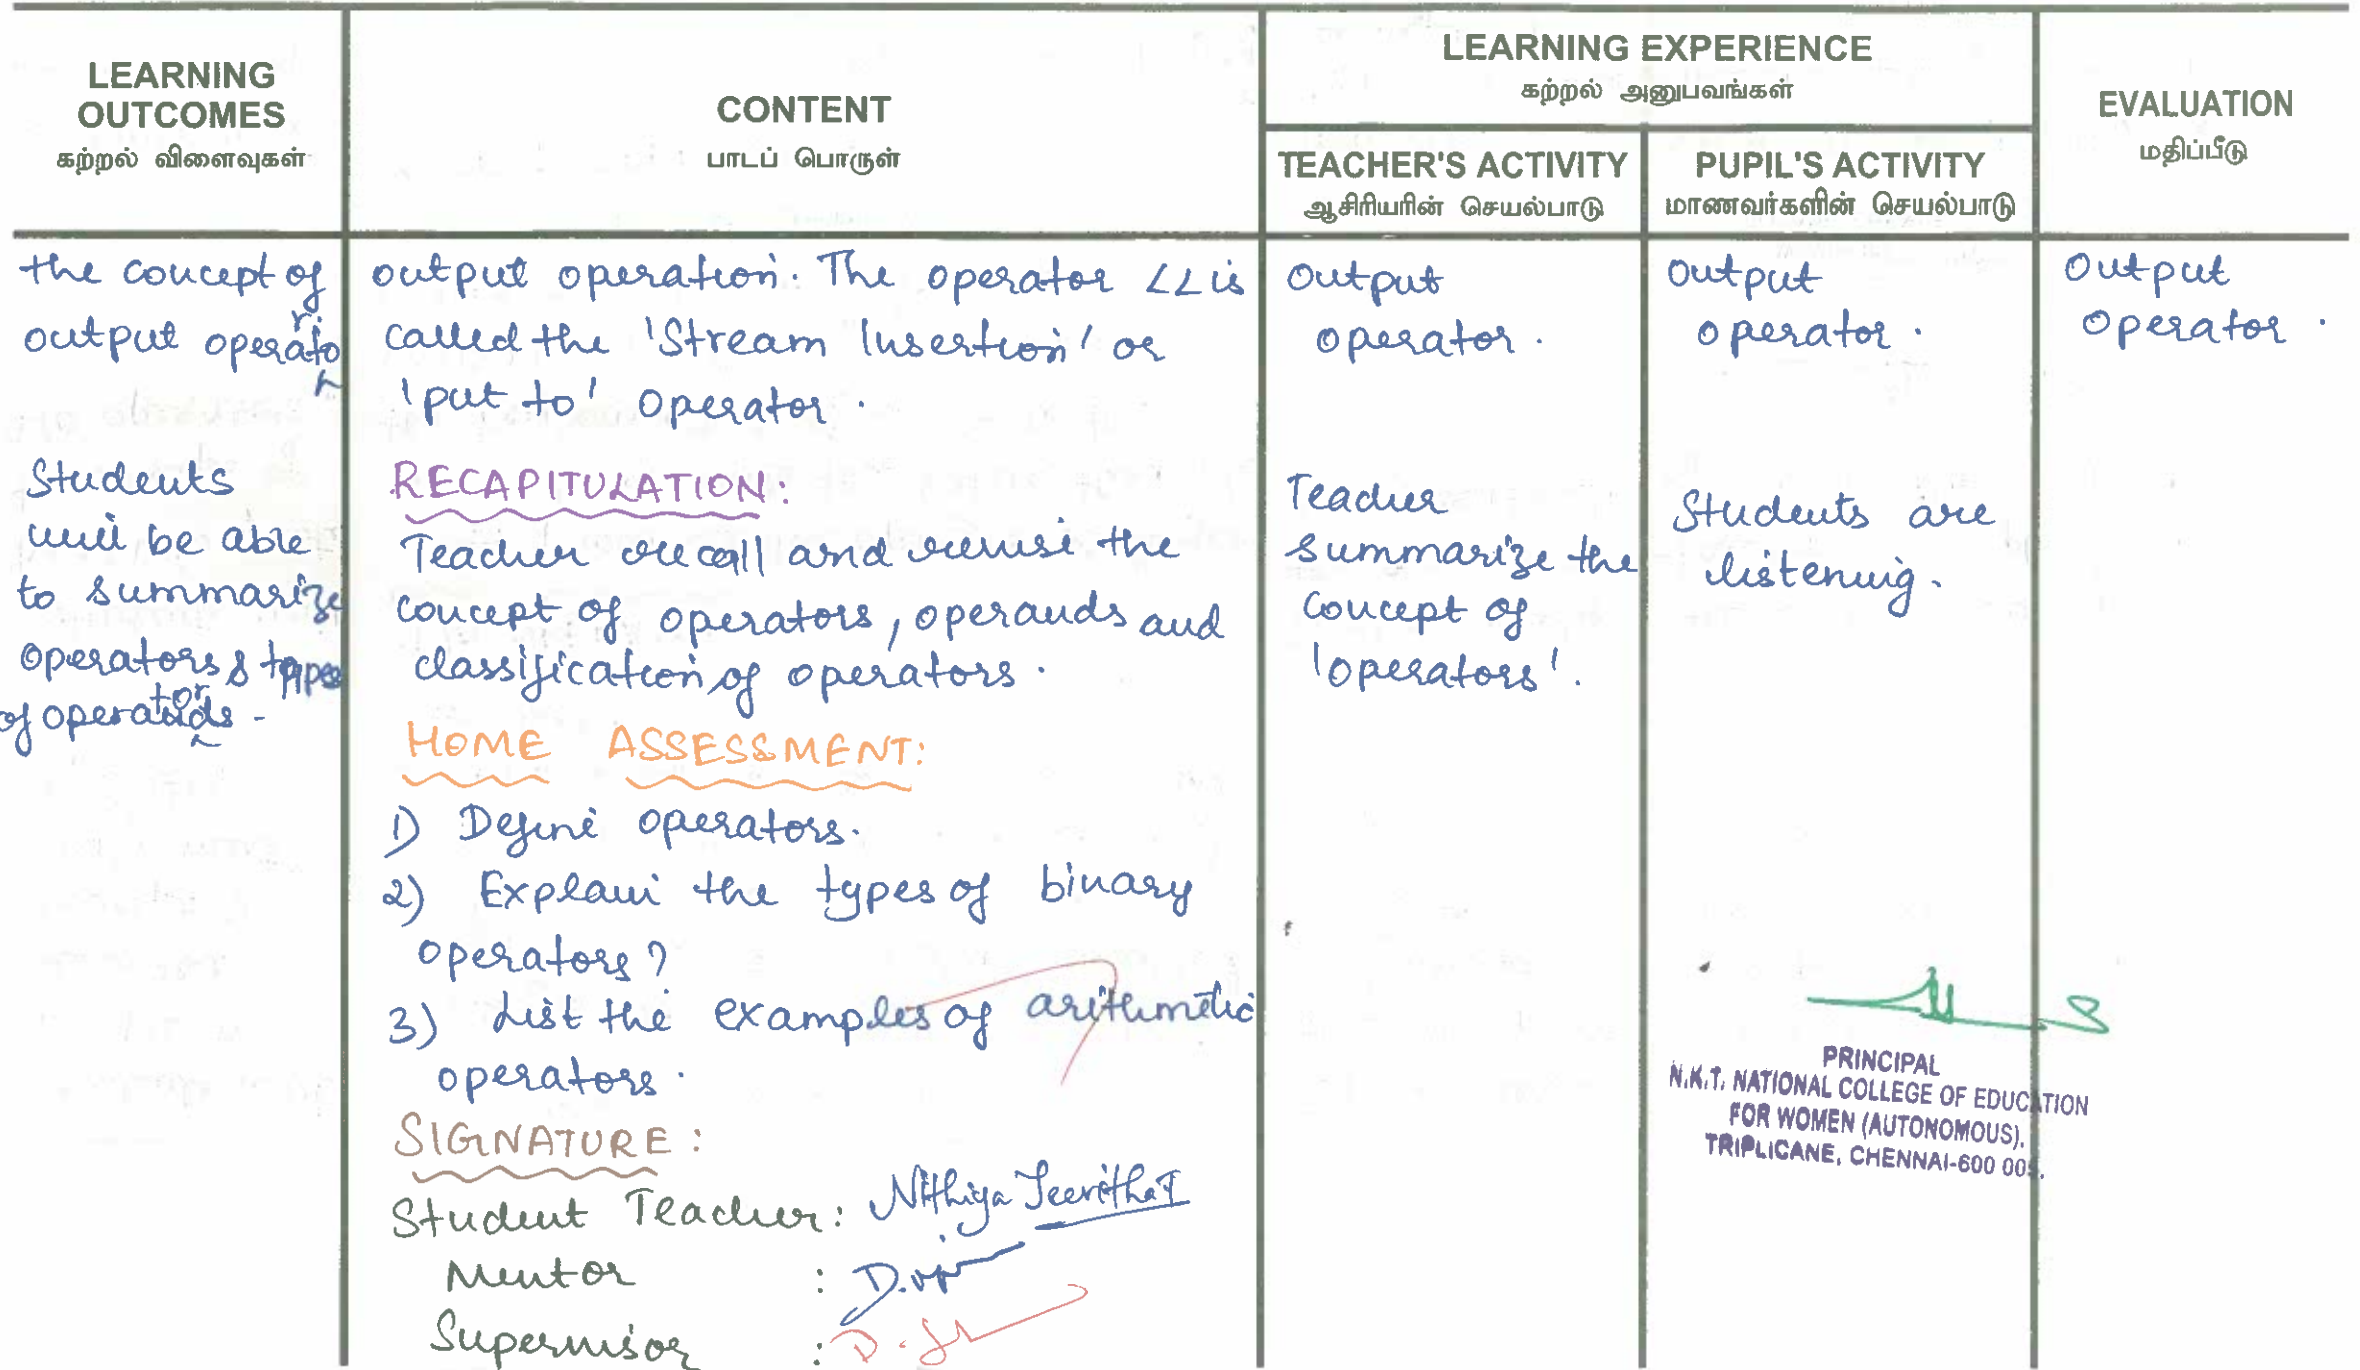 LEARNING
OUTCOMES
கற்றல் விளைவுகள்
CONTENT
பாடப் பொருள்
LEARNING EXPERIENCE
கற்றல் அனுபவங்கள்
TEACHER'S ACTIVITY
ஆசிரியரின் செயல்பாடு
PUPIL'S ACTIVITY
மாணவர்களின் செயல்பாடு
EVALUATION
மதிப்பீடு
the concept of
output operator
Students
will be able
to summarize
operators & types
of operators.
output operation. The operator << is
called the 'Stream Insertion' or
'put to' operator.
RECAPITULATION:
Teacher recall and revise the
concept of operators, operands and
classification of operators.
HOME ASSESSMENT:
1) Define operators.
2) Explain the types of binary
operators?
3) List the examples of arithmetic
operators.
SIGNATURE:
Student Teacher: Nithiya Jeevitha I
Mentor :
Supervisor :
Output
operator.
Teacher
summarize the
concept of
'operators'.
Output
operator.
Students are
listening.
Output
operator.
PRINCIPAL
N.K.T. NATIONAL COLLEGE OF EDUCATION
FOR WOMEN (AUTONOMOUS),
TRIPLICANE, CHENNAI-600 005.